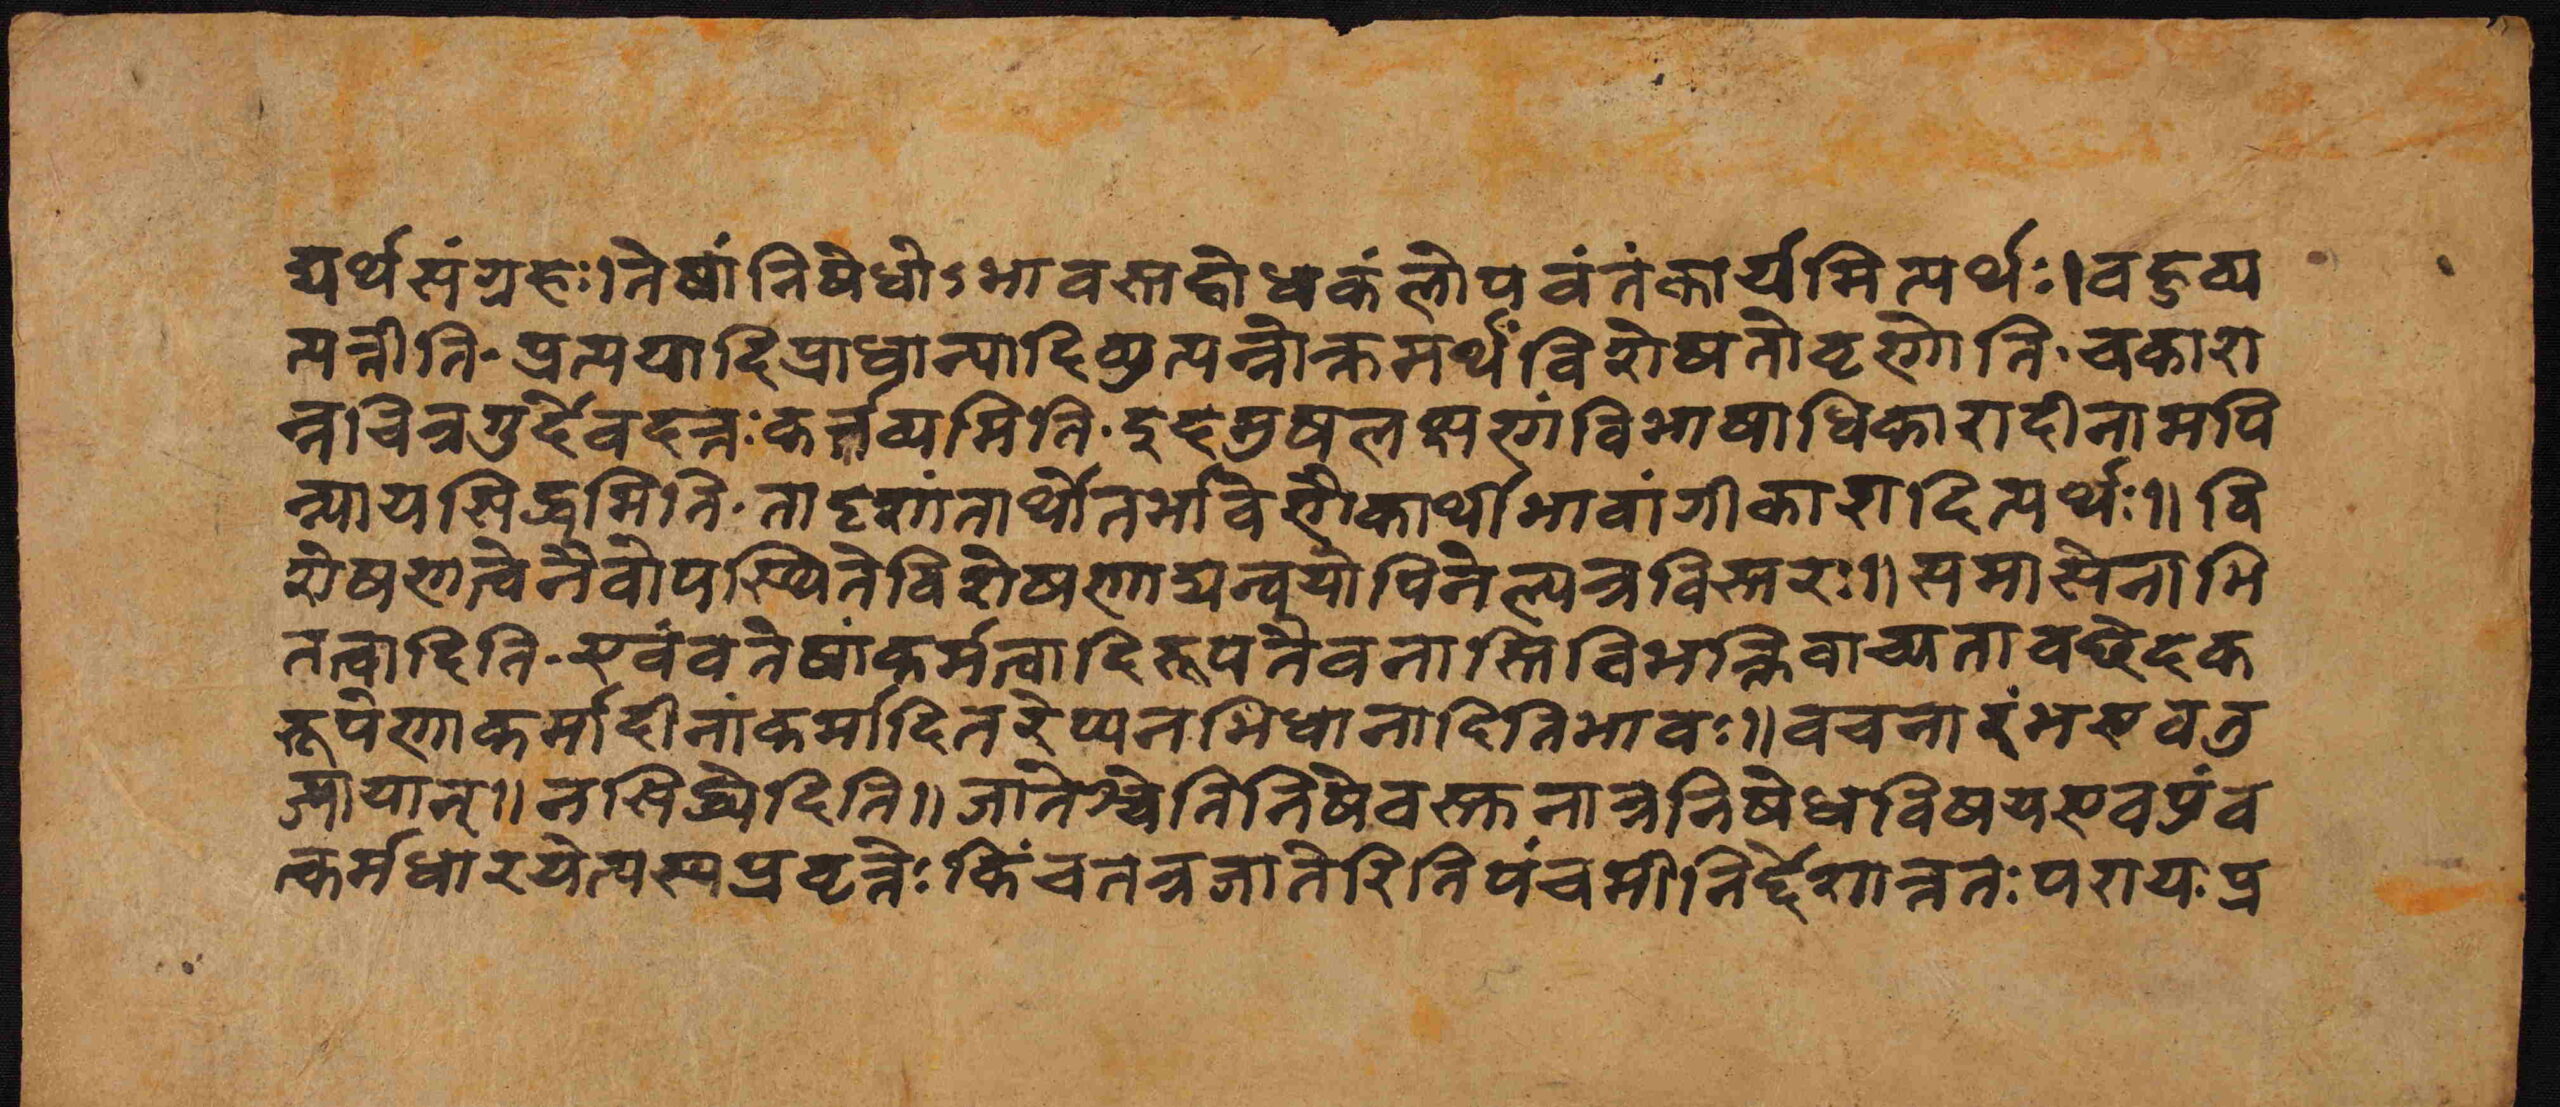 द्यर्थसंग्रहः।तेषांनिषेधोऽभावस्तद्बोधकंलोपवंतंकार्यमित्यर्थः।वहुव्य
त्पत्तीति-प्रत्ययादिप्राधान्यादिव्युत्पन्नोक्तमर्थंविशेषतोवृणोति-चकारा
न्नचित्रगुर्देवदत्तःकर्त्तव्यमिति-दुहमुषलक्षणंविभाषाधिकारादीनामपि
न्यायसिद्धमिति-तादृशांतार्थांतर्भावेणैकार्थीभावांगीकारादित्यर्थः॥वि
शेषणत्वेनैवोपस्थितेविशेषणाद्यन्वयोपिनेत्यन्यत्रविस्तरः॥समासेनाभि
तत्वादिति-एवंवतेषांकर्मत्वादिरूपेनैवनास्तिविभक्तिवाच्यतावछेदक
रूपेणकर्मादीनांकर्मादितरेप्यनभिधानादितिभावः॥वचनारंभएवतु
ज्यायान्॥नसिद्ध्येदिति॥जातेश्चेतिनिषेवस्तनात्रनिषेधविषयएवप्रंव
त्कर्मधारयेत्यस्यप्रवृत्तेःकिंचतत्रजातेरितिपंचमीनिर्द्देशात्ततःपरायःप्र